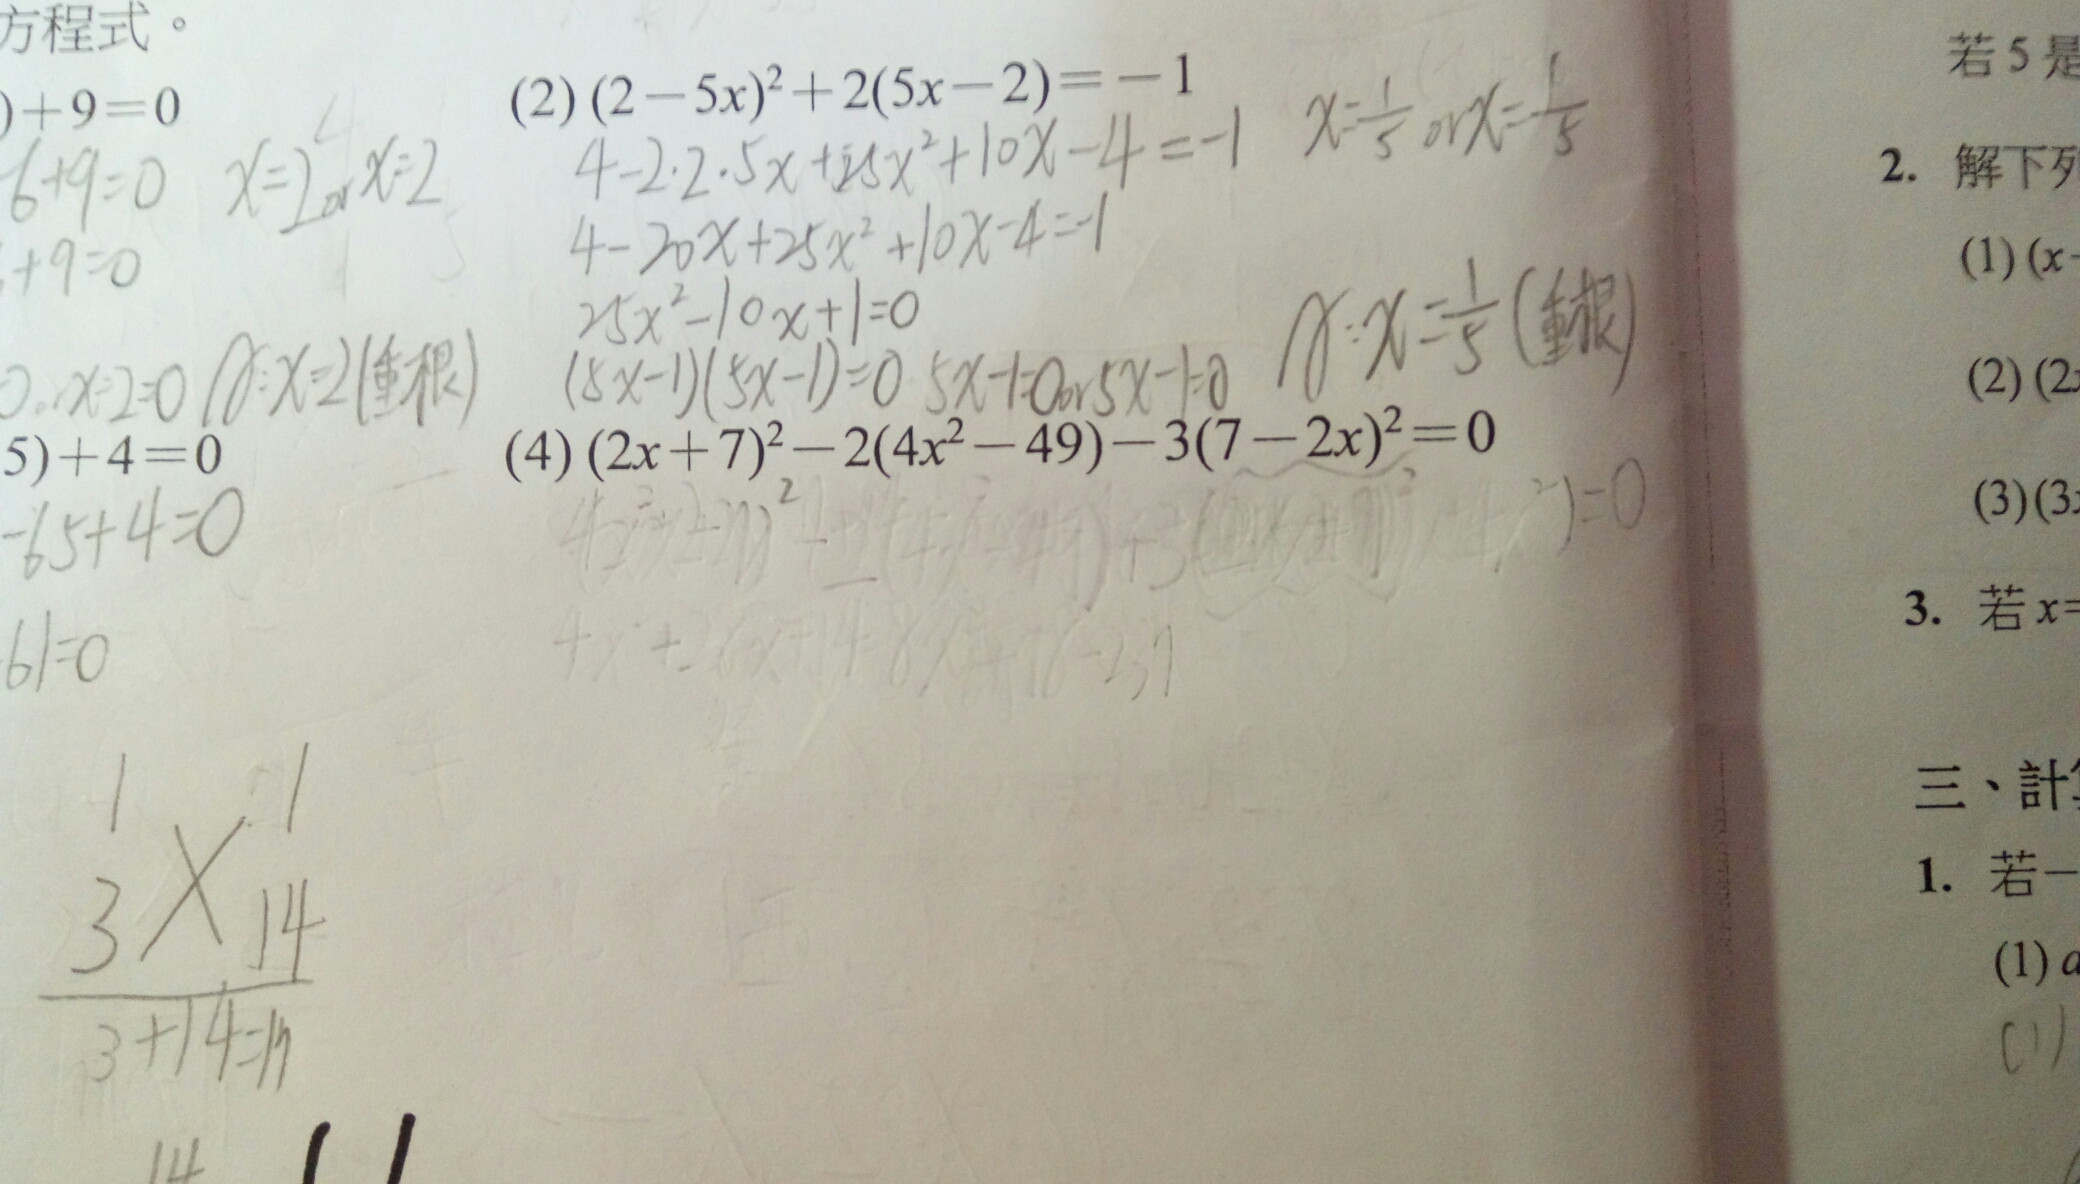 方程式。
)+9=0
6+9=0 x=2 or x=2
+9=0
x-2=0 A:x=2(重根)
(2) (2-5x)²+2(5x-2)=-1
4-2·2·5x+25x²+10x-4=-1
4-20x+25x²+10x-4=-1
25x²-10x+1=0
(5x-1)(5x-1)=0 5x-1=0 or 5x-1=0
x=1/5 or x=1/5
A:x=1/5(重根)
5)+4=0
-65+4=0
61=0
(4) (2x+7)²-2(4x²-49)-3(7-2x)²=0
)=0
1 1
3 14
3+14=17
14
若5是
2. 解下列
(1) (x-
(2) (2x
(3) (3x
3. 若x=
三、計算
1. 若一
(1) a
(1)